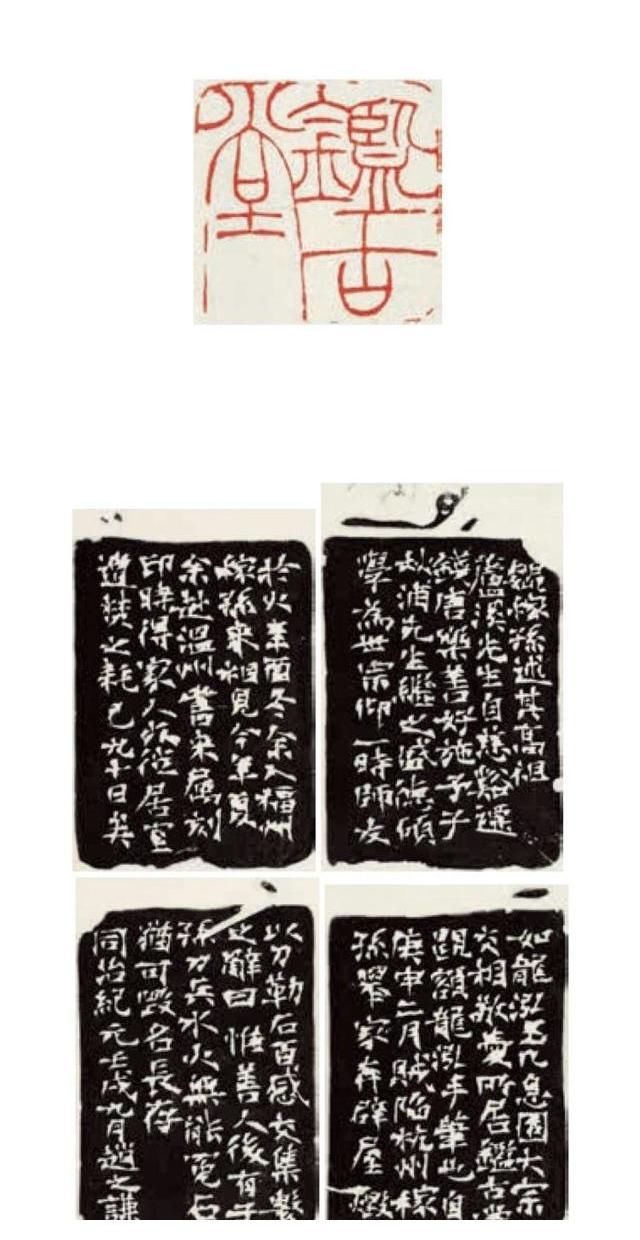 鑑古堂
稼孫述其高祖
溪先生自慈谿遷
錢唐樂善好施予子
先生繼之盛德碩
學為世宗仰一時師友
如龍泓玉几息園大宗
交相敬愛所居鑑古堂
題額龍泓手筆也自
庚申二月賊陷杭州稼
孫舉家奔辟屋燬
於火辛酉冬余入福州
稼孫來相見今年夏
余赴溫州書來屬刻
印時得家人流徙居室
遭焚之耗已九十日矣
以刀勒石百感交集繫
之辭曰惟善人後有子
孫刀兵水火無能冤石
猶可毀名長存
同治紀元壬戌九月趙之謙